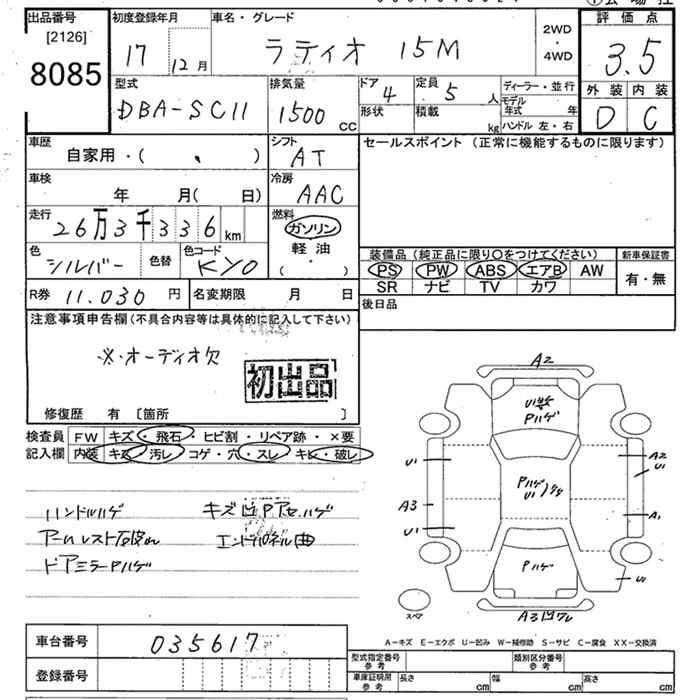 出品番号 [2126]
8085
初度登録年月
17 12月
車名・グレード
ラティオ 15M
2WD・4WD
評価点
3.5
外装 内装
D C
型式
DBA-SC11
排気量
1500 CC
ドア 4
形状
定員 5 人
積載 kg
ディーラー・並行
モデル年式 年
ハンドル 左・右
車歴
自家用・( 、 )
シフト
AT
セールスポイント(正常に機能するものに限ります)
車検
年 月( 日)
冷房
AAC
走行
26万3千336km
燃料
ガソリン
軽油
( ・ )
色
シルバー
色替
色コード
KY0
装備品(純正品に限り○をつけてください)
PS PW ABS エアB AW
SR ナビ TV カワ
新車保証書
有・無
R券 11.030 円
名変期限 月 日
後日品
注意事項申告欄(不具合内容等は具体的に記入して下さい)
※・オーディオ欠
初出品
修復歴 有 〔箇所 〕
検査員記入欄
FW キズ・飛石・ヒビ割・リペア跡・×要
内装 キズ・汚レ・コゲ・穴・スレ・キレ・破レ
ハンドルハゲ
キズ凹Pアセハゲ
エンドパネル曲
ドアミラーPハゲ
A2
U1
Pハゲ
U1
A2
U1
Pハゲ
U1
A3
A1
U1
Pハゲ
U1
スペア
A3凹ワレ
A-キズ E-エクボ U-凹み W-補修跡 S-サビ C-腐食 XX-交換済
車台番号 035617
登録番号
型式指定番号 参考
類別区分番号 参考
車庫証明用 参考
長さ cm
幅 cm
高さ cm